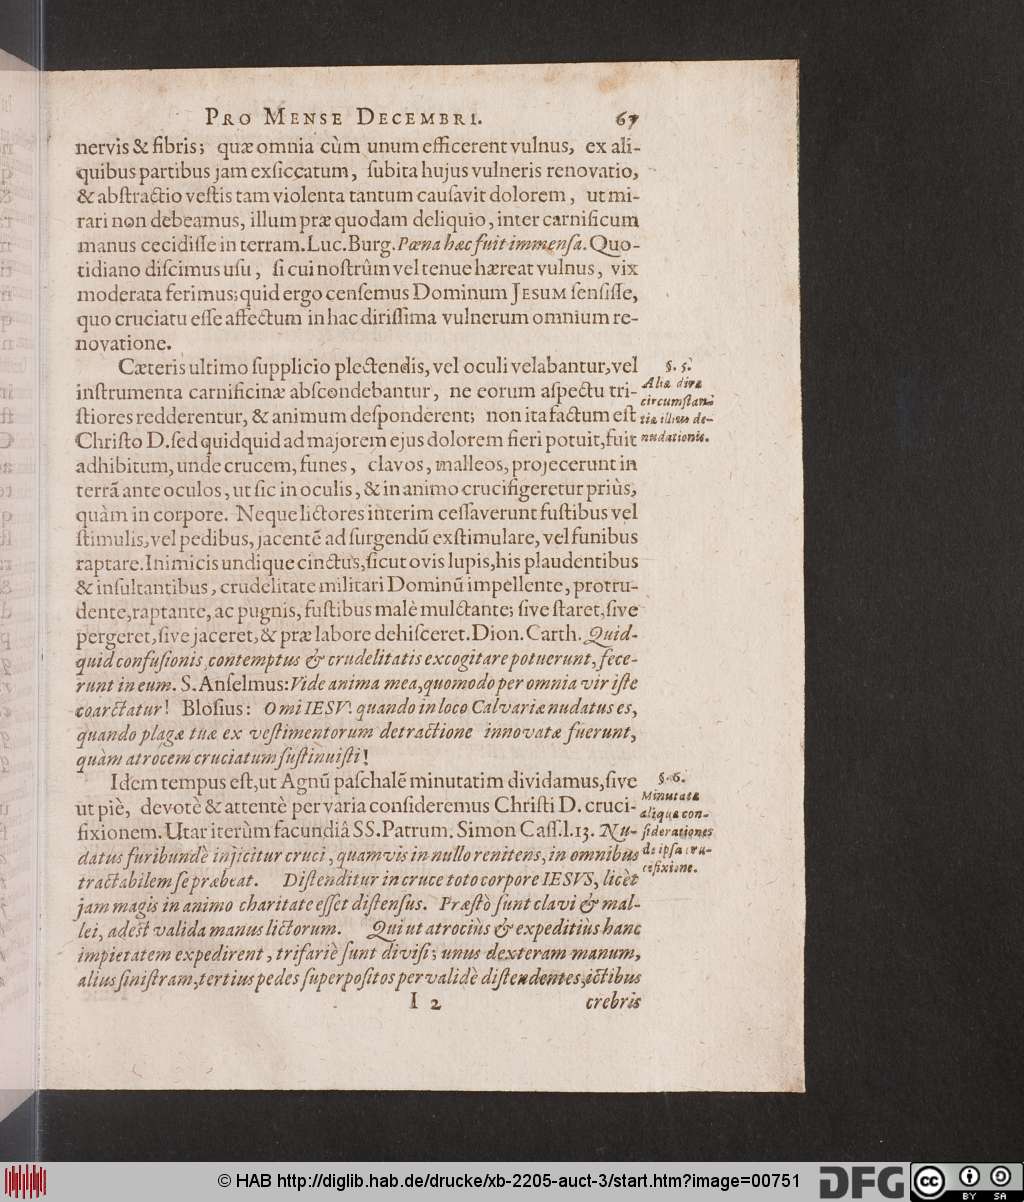 PRO MENSE DECEMBRI. 67
nervis & fibris; quæ omnia cùm unum efficerent vulnus, ex ali-
quibus partibus jam exſiccatum, ſubita hujus vulneris renovatio,
& abſtractio veſtis tam violenta tantum cauſavit dolorem, ut mi-
rari non debeamus, illum præ quodam deliquio, inter carnificum
manus cecidiſſe in terram. Luc. Burg. Pœna hæc fuit immenſa. Quo-
tidiano diſcimus uſu, ſi cui noſtrûm vel tenue hæreat vulnus, vix
moderata ferimus; quid ergo cenſemus Dominum JESUM ſenſiſſe,
quo cruciatu eſſe affectum in hac diriſſima vulnerum omnium re-
novatione.
Cæteris ultimo ſupplicio plectendis, vel oculi velabantur, vel
inſtrumenta carnificinæ abſcondebantur, ne eorum aſpectu tri-
ſtiores redderentur, & animum deſponderent; non ita factum eſt
Chriſto D. ſed quidquid ad majorem ejus dolorem fieri potuit, fuit
adhibitum, unde crucem, funes, clavos, malleos, projecerunt in
terrã ante oculos, ut ſic in oculis, & in animo crucifigeretur priùs,
quàm in corpore. Neque lictores interim ceſſaverunt fuſtibus vel
ſtimulis, vel pedibus, jacentẽ ad ſurgendũ exſtimulare, vel funibus
raptare. Inimicis undique cinctus, ſicut ovis lupis, his plaudentibus
& inſultantibus, crudelitate militari Dominũ impellente, protru-
dente, raptante, ac pugnis, fuſtibus malè mulctante; ſive ſtaret, ſive
pergeret, ſive jaceret, & præ labore dehiſceret. Dion. Carth. Quid-
quid confuſionis contemptus & crudelitatis excogitare potuerunt, fece-
runt in eum. S. Anſelmus: Vide anima mea, quomodo per omnia vir iſte
coarctatur! Bloſius: O mi IESV! quando in loco Calvariæ nudatus es,
quando plagæ tuæ ex veſtimentorum detractione innovatæ fuerunt,
quàm atrocem cruciatum ſuſtinuiſti!
Idem tempus eſt, ut Agnũ paſchalẽ minutatim dividamus, ſive
ut piè, devotè & attentè per varia conſideremus Chriſti D. cruci-
fixionem. Utar iterùm facundiâ SS. Patrum. Simon Caſſ. l. 13. Nu-
datus furibundè injicitur cruci, quamvis in nullo renitens, in omnibus
tractabilem ſe præbeat. Diſtenditur in cruce toto corpore IESVS, licèt
jam magis in animo charitate eſſet diſtenſus. Præſtò ſunt clavi & mal-
lei, adeſt valida manus lictorum. Qui ut atrociùs & expeditiùs hanc
impietatem expedirent, trifariè ſunt diviſi; unus dexteram manum,
alius ſiniſtram, tertius pedes ſuperpoſitos per validè diſtendentes, ictibus
I 2 crebris
§. 5.
Aliæ diræ
circumſtan-
tiæ illius de-
nudationis.
§. 6.
Minutatæ
aliquæ con-
ſiderationes
de ipſa cru-
cifixione.
© HAB http://diglib.hab.de/drucke/xb-2205-auct-3/start.htm?image=00751
DFG
cc
BY SA